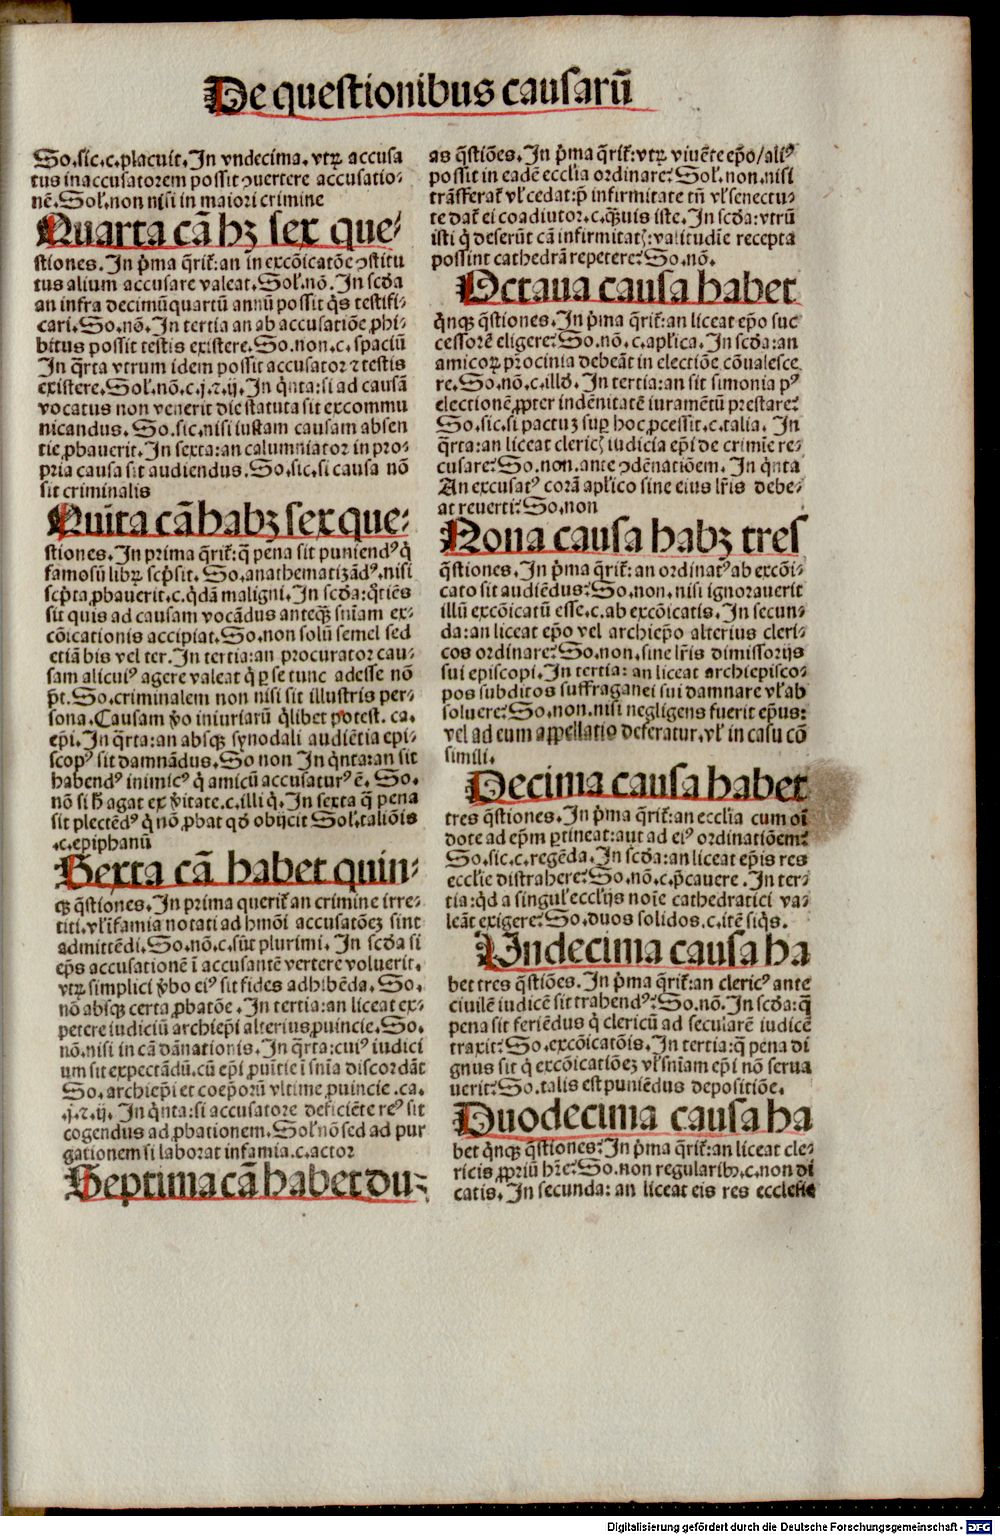 De questionibus causarū
So.sic.c.placuit.In vndecima.vtꝝ accusa
tus inaccusatorem possit ꝯuertere accusatio⸗
nē.Sol̓.non nisi in maiori crimine
Quarta cā hꝫ sex que⸗
stiones.In p̄ma q̄rit̉:an in excōicatōe ꝯstitu
tus alium accusare valeat.Sol̓.nō.In scd̓a
an infra decimūquartū annū possit q̇s testifi⸗
cari.So.nō.In tertia an ab accusatiōe ꝓhi⸗
bitus possit testis existere.So.non.c.spaciū
In q̄rta vtrum idem possit accusator ⁊ testis
existere.Sol̓.nō.c.j.⁊.ij.In q̇nta:si ad causā
vocatus non venerit die statuta sit excommu
nicandus.So.sic.nisi iustam causam absen
tie ꝓbauerit.In sexta:an calumniator in pro⸗
pria causa sit audiendus.So.sic.si causa nō
sit criminalis
Quīta cā habꝫ sex que⸗
stiones.In prima q̄rit̉:q̄ pena sit puniendꝰ q̇
famosū librꝝ scp̄sit.So.anathematizādꝰ.nisi
scp̄ta ꝓbauerit.c.q̇dā maligni.In scd̓a:q̇tiēs
sit quis ad causam vocādus anteqꝫ sniam ex⸗
cōicationis accipiat.So.non solū semel sed
etiā bis vel ter.In tertia:an procurator cau⸗
sam alicuiꝰ agere valeat q̇ ꝑ se tunc adesse nō
p̄t.So.criminalem non nisi sit illustris per⸗
sona.Causam v̓o iniuriarū q̇libet potest.ca.
ep̄i.In q̄rta:an absqꝫ synodali audiētia epi⸗
scopꝰ sit damnādus.So non In q̇nta:an sit
habendꝰ inimicꝰ q̇ amicū accusaturꝰ ē.So.
nō si h̄ agat ex v̓itate.c.illi q̇.In sexta q̄ pena
sit plectēdꝰ q̇ nō ꝓbat qd̓ obijcit Sol̓.taliōis
.c.epiphanū
Sexta cā habet quin⸗
qꝫ q̄stiones.In prima querit̉ an crimine irre⸗
titi.vl̓ īfamia notati ad hm̄oi accusatōeꝫ sint
admittēdi.So.nō.c.sūt plurimi.In scd̓a si
ep̄s accusationē ī accusantē vertere voluerit.
vtꝝ simplici v̓bo eiꝰ sit fides adhibēda.So.
nō absqꝫ certa ꝓbatōe.In tertia:an liceat ex⸗
petere iudiciū archiep̄i alterius ꝓuincie.So.
nō.nisi in cā dānationis.In q̄rta:cuiꝰ iudici
um sit expectādū.cū ep̄i ꝓuītie ī snīa discordāt
So.archiep̄i et coep̄orū vltime ꝓuincie.ca.
.j.⁊.ij.In q̇nta:si accusatore deficiēte reꝰ sit
cogendus ad ꝓbationem.Sol̓ nō sed ad pur
gationem si laborat infamia.c.actor
Septima cā habet du⸗
as q̄stiōes.In p̄ma q̄rit̉:vtꝝ viuēte ep̄o/aliꝰ
possit in eadē ecclīa ordinare?Sol̓.non.nisi
trāsferat̉ vl̓ cedat:p̄ infirmitate tn̄ vl̓ senectu⸗
te dat̉ ei coadiutor.c.q̄uis iste.In scd̓a:vtrū
isti q̇ deserūt cā infirmitatꝭ:valitudīe recepta
possint cathedrā repetere?So.nō.
Octaua causa habet
q̇nqꝫ q̄stiones.In p̄ma q̄rit̉:an liceat ep̄o suc
cessorē eligere?So.nō.c.apl̓ica.In scd̓a:an
amicoꝝ pr̄ocinia debeāt in electiōe cōualesce
re.So.nō.c.illd̓.In tertia:an sit simonia pꝰ
electionē ꝓpter indēnitatē iuramētū prestare?
So.sic.si pactuꝫ suꝑ hoc ꝓcessit.c.talia.In
q̄rta:an liceat clericꝭ iudicia ep̄i de crimīe re⸗
cusare?So.non.ante ꝯdēnatiōem.In q̇nta
An excusatꝰ corā apl̓ico sine eius lr̄is debe⸗
at reuerti?So.non
Nona causa habꝫ tres
q̄stiones.In p̄ma q̄rit̉:an ordinatꝰ ab excōi⸗
cato sit audiēdus?So.non.nisi ignorauerit
illū excōicatū esse.c.ab excōicatis.In secun⸗
da:an liceat ep̄o vel archiep̄o alterius cleri⸗
cos ordinare?So.non.sine lr̄is dimissorijs
sui episcopi.In tertia:an liceat archiepisco⸗
pos subditos suffraganei sui damnare vl̓ ab
soluere?So.non.nisi negligens fuerit ep̄us:
vel ad eum appellatio deferatur.vl̓ in casu cō
simili.
Decima causa habet
tres q̄stiones.In p̄ma q̄rit̉:an ecclīa cum oī
dote ad ep̄m ꝑtineat:aut ad eiꝰ ordinatiōem?
So.sic.c.regēda.In scd̓a:an liceat ep̄is res
ecclīe distrahere?So.nō.c.p̄cauere.In ter⸗
tia:q̇d a singul̓ ecclijs noīe cathedratici va⸗
leāt exigere?So.duos solidos.c.itē siq̇s.
Undecima causa ha
bet tres q̄stiōes.In p̄ma q̄rit̉:an clericꝰ ante
ciuilē iudicē sit trahendꝰ?So.nō.In scd̓a:q̄
pena sit feriēdus q̇ clericū ad secularē iudicē
traxit?So.excōicatōis.In tertia:q̄ pena di
gnus sit q̇ excōicatiōeꝫ vl̓ sniam ep̄i nō serua
uerit?So.talis est puniēdus depositiōe.
Duodecima causa ha
bet q̇nqꝫ q̄stiones?In p̄ma q̄rit̉:an liceat cle⸗
ricis ꝓpriū hr̄e?So.non regularibꝫ.c.non di
catis.In secunda:an liceat eis res ecclesie
Digitalisierung gefördert durch die Deutsche Forschungsgemeinschaft - DFG